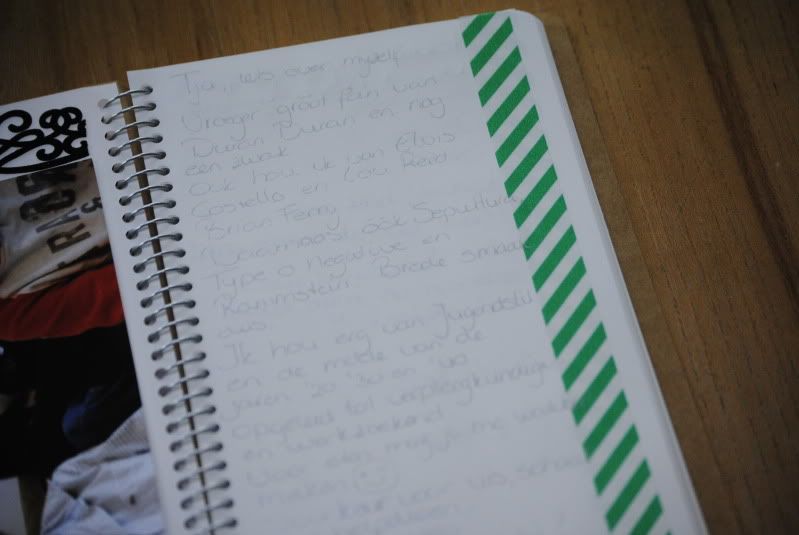 Tja, iets over myself
Vroeger groot fan van
Duran Duran en nog
een zwak
Ook hou ik van Elvis
Costello en Lou Reed
Brian Ferry
Daarnaast óók Sepultura
Type O Negative en
Rammstein. Brede smaak
dus.
Ik hou erg van Jugendstil
en de mode van de
jaren '20 '30 en '40
opgeleid tot verpleegkundige
en werkzoekend
Voor eten mag je me wakker
maken